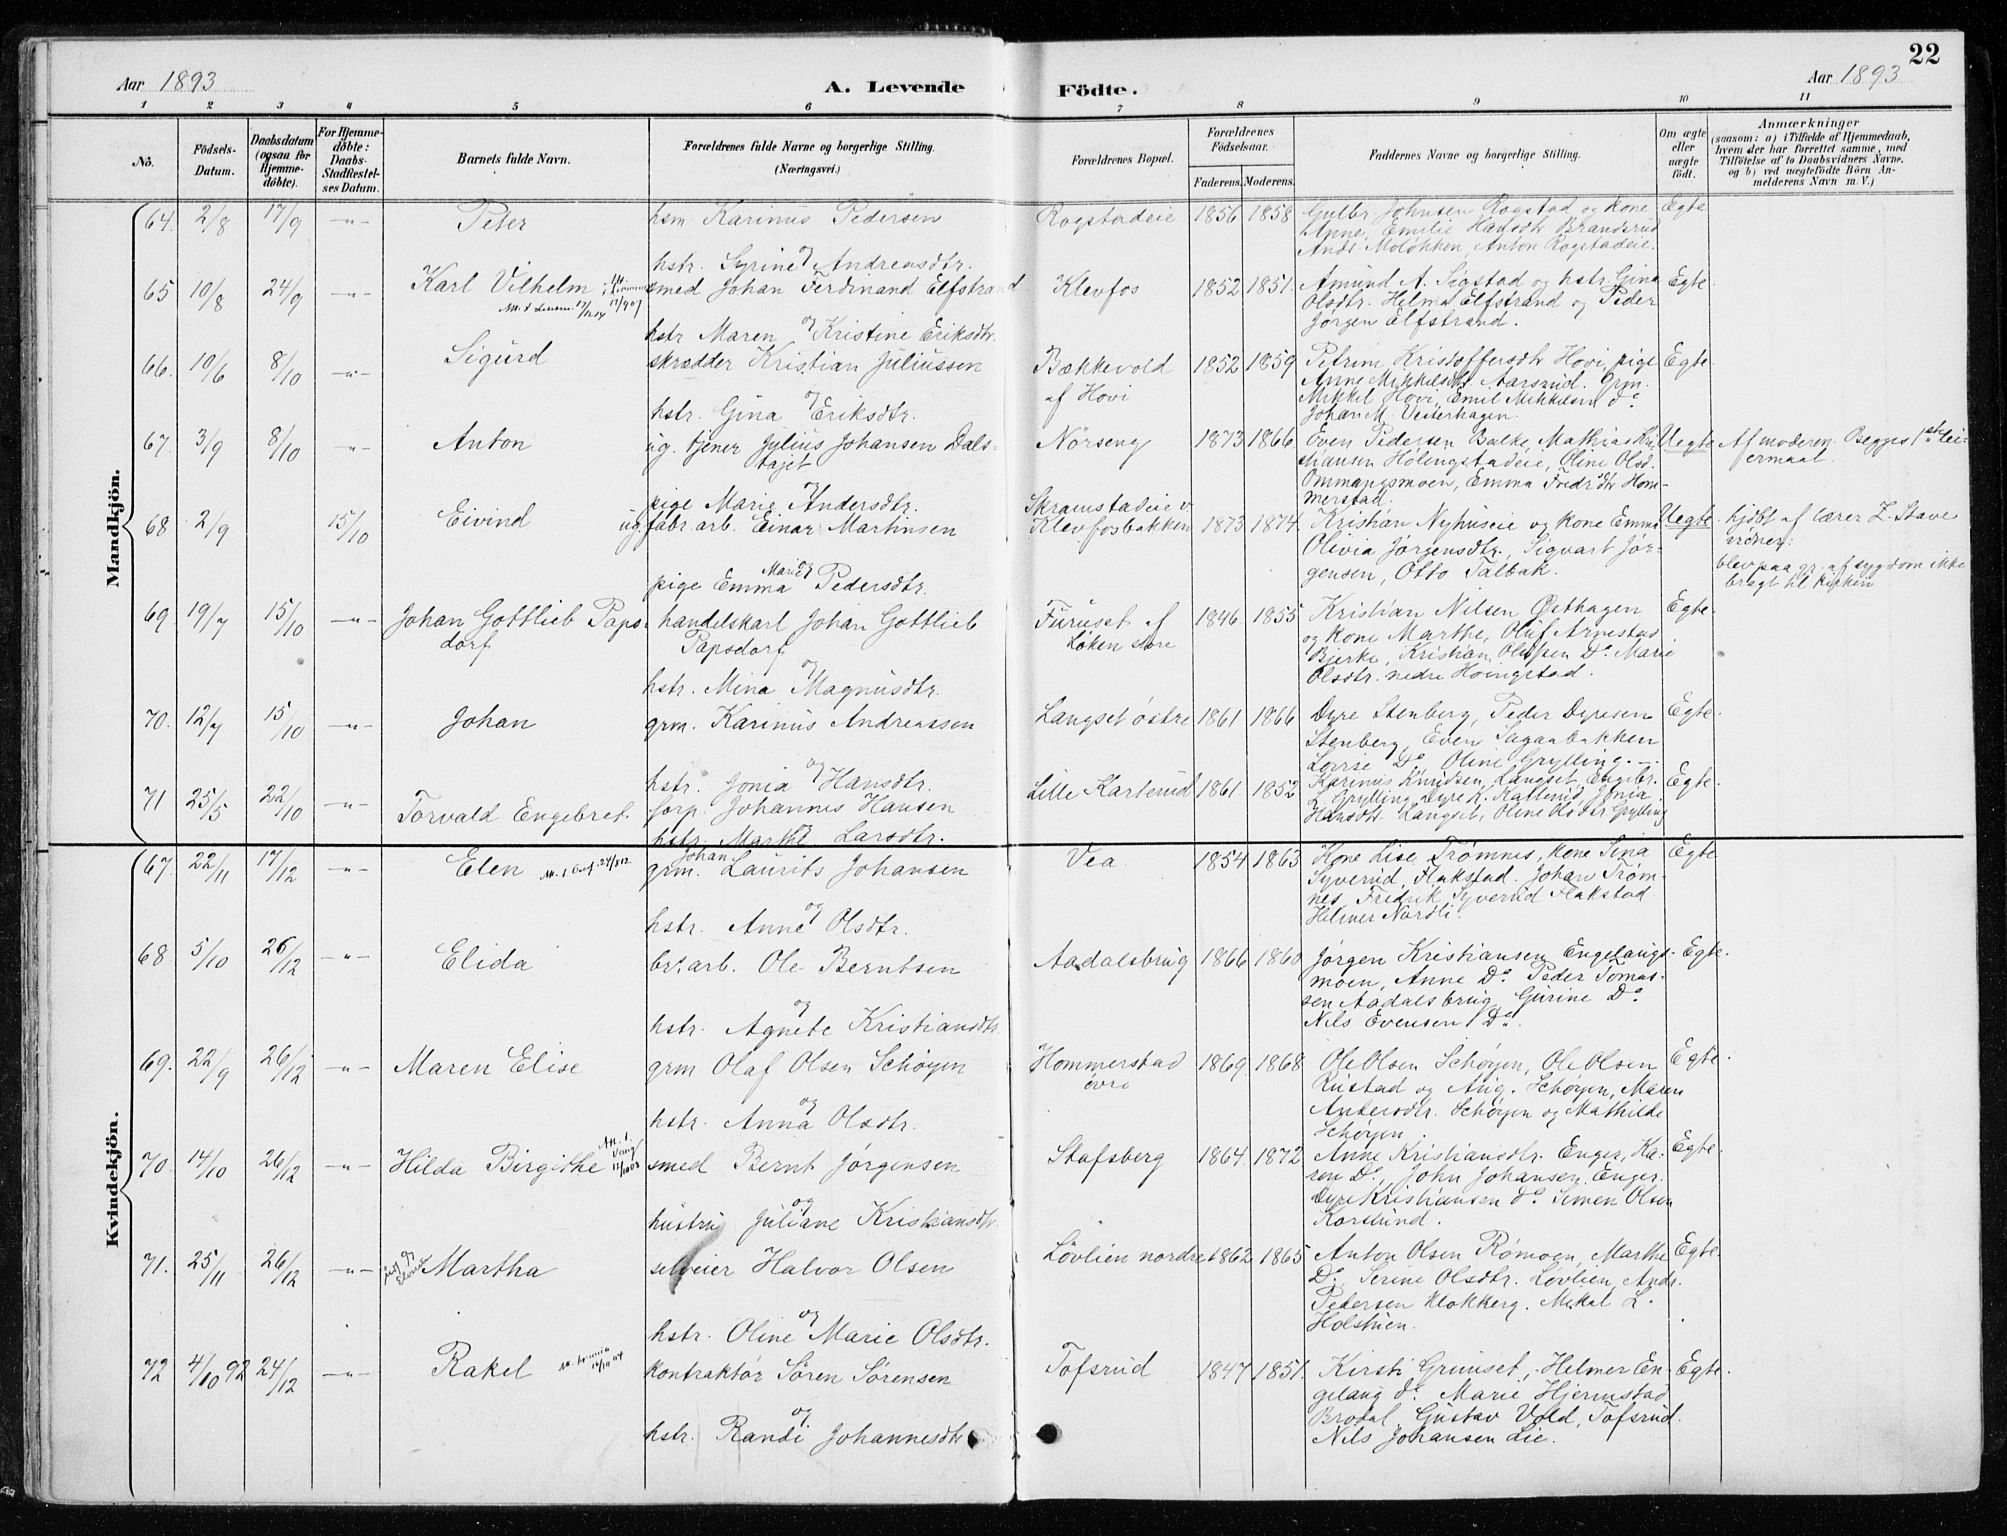 22
Aar 1893
A. Levende Födte.
Aar 1893
1 2 3 4 5 6 7 8 9 10 11
No.
Födsels-
Datum.
Daabsdatum
(ogsaa for
Hjemme-
döbte).
For Hjemme-
döbte:
Daabs-
Stadfæstel-
ses Datum.
Barnets fulde Navn.
Forældrenes fulde Navne og borgerlige Stilling.
(Næringsvei.)
Forældrenes Bopæl.
Forældrenes
Födselsaar.
Faderens. Moderens.
Faddernes Navne og borgerlige Stilling.
Om ægte
eller
uægte
födt.
Anmærkninger
(saasom: a) i Tilfælde af Hjemmedaab,
hvem der har forrettet samme, med
Tilföielse af to Daabsvidners Navne,
og b) ved uægtefödte Börn An-
melderens Navn m. V.)
Mandkjön.
64. 2/8 17/9 -"- Peter
hsm Karinus Pedersen
og
hstr. Syrine Andreasdtr.
Rogstadeie 1856 1858
Gulbr. Johnsen Rogstad og kone
Anne, Emilie Hansdtr Brandsrud
Ands Moløkken, Anton Rogstadeie.
Egte
65 10/8 24/9 -"- Karl Vilhelm
smed Johan Ferdinand Elfstrand
og
hstr Maren Kristine Eriksdtr.
Klevfos 1852 1851.
Amund A. Sigstad og hstr Gina
Olsdtr. Helma Elfstrand og Peder
Jørgen Elfstrand.
Egte.
66. 10/6 8/10 -"- Sigurd
skrædder Kristian Juliussen
og
hstr. Gina Eriksdtr.
Bækkevold
af Hovi
1852 1859
Petrine Kristoffersdtr Hovi, pige
Anne Mikkelsdtr Aarsrud. Grm.
Mikkel Hovi, Emil Mikkelsen do
Johan M. Vesterhagen.
Egte.
67. 3/9 8/10 -"- Anton
ug. tjener Julius Johansen Dals-
tajet
og
pige Marie Andersdtr.
Nørseng 1873 1866
Even Pedersen Balke, Mathias Kri-
stiansen Hølingstadeie, Oline Olsd.
Ommangsmoen, Emma Fredr.dtr Hom-
merstad.
Uegte
Af moderen. Begges 1ste lei-
ermaal.
68 2/9 15/10 Eivind
ug. fabr. arb. Einar Martinsen
Marie og
pige Emma Pedersdtr.
Skramstadeie v
Klevfosbakken 1873 1874.
Kristian Nyhuseie og kone Emma
Olivia Jørgensdtr, Sigvart Jør-
gensen, Otto Talbak.
Uegte
hjdbt af lærer Z. Stave
vidner:
blev paa gr. af sygdom ikke
bragt til kirken
69 19/7 15/10 -"- Johan Gottlieb Paps-
dorf
handelskarl Johan Gottlieb
Papsdorf
og
hstr. Mina Magnusdtr.
Furuset af
Løken store
1846 1855
Kristian Nilsen Østhagen
og kone Marthe, Oluf Arnestad
Bjerke, Kristian Olufsen Do. Marie
Olsdtr. nedre Hoingstad.
Egte.
70. 12/7 15/10 -"- Johan
grm. Karinus Andreassen
og
hstr. Jonia Hansdtr.
Langset østre 1861 1866
Dyre Stenberg, Peder Dyresen
Stenberg, Even Sagaabakken
Lovise Do Oline Grylling.
Egte.
71 25/5 22/10 -"- Torvald Engebret.
forp. Johannes Hansen
hstr. Marthe Larsdtr.
Lille Karterud 1861 1852
Karinus Knudsen Langset, Engebr.
L. Grylling, Dyre K. Katterud, Jonia
Hansdtr. Langset, Oline Olsdtr Grylling
Egte.
Kvindekjön.
67. 22/11 17/12 -"- Elen
Johan
grm. Laurits Johansen
og
hstr. Anne Olsdtr.
Vea 1854 1863
Kone Lise Trømnes, kone Sina
Syverud, Flakstad. Johan Trøm-
nes, Fredrik Syverud Flakstad
Helmer Nordli.
Egte
68 5/10 26/12 -"- Elida
br. arb. Ole Berntsen
og
hstr. Agnete Kristiansdtr
Aadalsbrug 1866 1860
Jørgen Kristiansen Engelaugs-
moen, Anne Do. Peder Tomas-
sen Aadalsbrug, Gurine Do.
Nils Evensen Do.
Egte.
69. 22/9 26/12 -"- Maren Elise
grm. Olaf Olsen Schøyen
og
hstr. Anna Olsdtr.
Hommerstad
øvre
1869 1868
Ole Olsen Schøyen, Ole Olsen
Rustad og Aug. Schøyen, Maren
Andersdtr. Schøyen og Mathilde
Schøyen.
Egte
70. 14/10 26/12 -"- Hilda Birgithe
smed Bernt Jørgensen
og
hustru Juliane Kristiansdtr.
Stafsberg 1864. 1872
Anne Kristiansdtr. Enger, Ka-
ren Do, John Johansen Enger.
Dyre Kristiansen do Simen Olsen
Korslund.
Egte.
71. 25/11 26/12 -"- Martha
selveier Halvor Olsen
og
hstr. Oline Marie Olsdtr.
Løvlien nordre 1862 1865
Anton Olsen Rømoen, Marthe
Do, Serine Olsdtr. Løvlien, Andr.
Pedersen Klokkerg. Mikal L.
Holstuen.
Egte.
72 4/10 92 24/12 -"- Rakel
kontraktør Søren Sørensen
og
hstr. Randi Johannesdtr
Tofsrud 1847 1851.
Kirsti Grimset, Helmer En-
gelaug do Marie Hjermstad
Brodal, Gustav Vold, Tofsrud.
Nils Johansen Lie.
Egte.